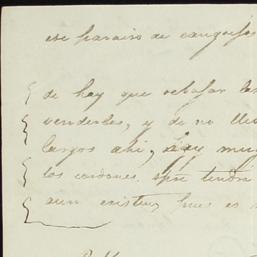 ese paraiso de cangrejos
de hay que rebajar las
venderles, y de no lle
largos ahi, hay muy
los cordones, que tendn
aun existen, pues es